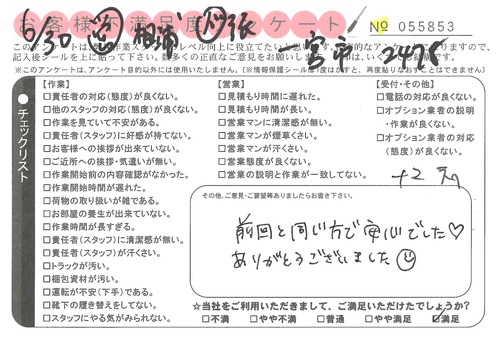 お客様不満足度アンケート
№ 055853
6/30
一宮市
2478
このアンケートは
記入後シールを上に貼って下さい。
※このアンケートは、アンケート目的以外には使用いたしません。
チェックリスト
【作業】
□責任者の対応(態度)が良くない。
□他のスタッフの対応(態度)が良くない。
□作業を見ていて不安がある。
□責任者(スタッフ)に好感が持てない。
□お客様への挨拶が出来ていない。
□ご近所への挨拶・気遣いが無い。
□作業開始前の内容確認がなかった。
□作業開始時間が遅れた。
□荷物の取り扱いが雑である。
□お部屋の養生が出来ていない。
□作業時間が長すぎる。
□責任者(スタッフ)に清潔感が無い。
□責任者(スタッフ)が汗くさい。
□トラックが汚い。
□梱包資材が汚い。
□運転が不安(下手)である。
□靴下の履き替えをしてない。
□スタッフにやる気がみられない。
【営業】
□見積もり時間に遅れた。
□見積もり時間が長い。
□営業マンに清潔感が無い。
□営業マンが煙草くさい。
□営業マンが汗くさい。
□営業態度が良くない。
□営業の説明と作業が一致してない。
【受付・その他】
□電話の対応が良くない。
□オプション業者の説明
・作業が良くない。
□オプション業者の対応
(態度)が良くない。
その他、ご意見・ご要望等ありましたらお書き下さい。
前回と同じ方で安心でした♡
ありがとうございました
☆当社をご利用いただきまして、ご満足いただけたでしょうか?
□不満 □やや不満 □普通 □やや満足 ☑満足